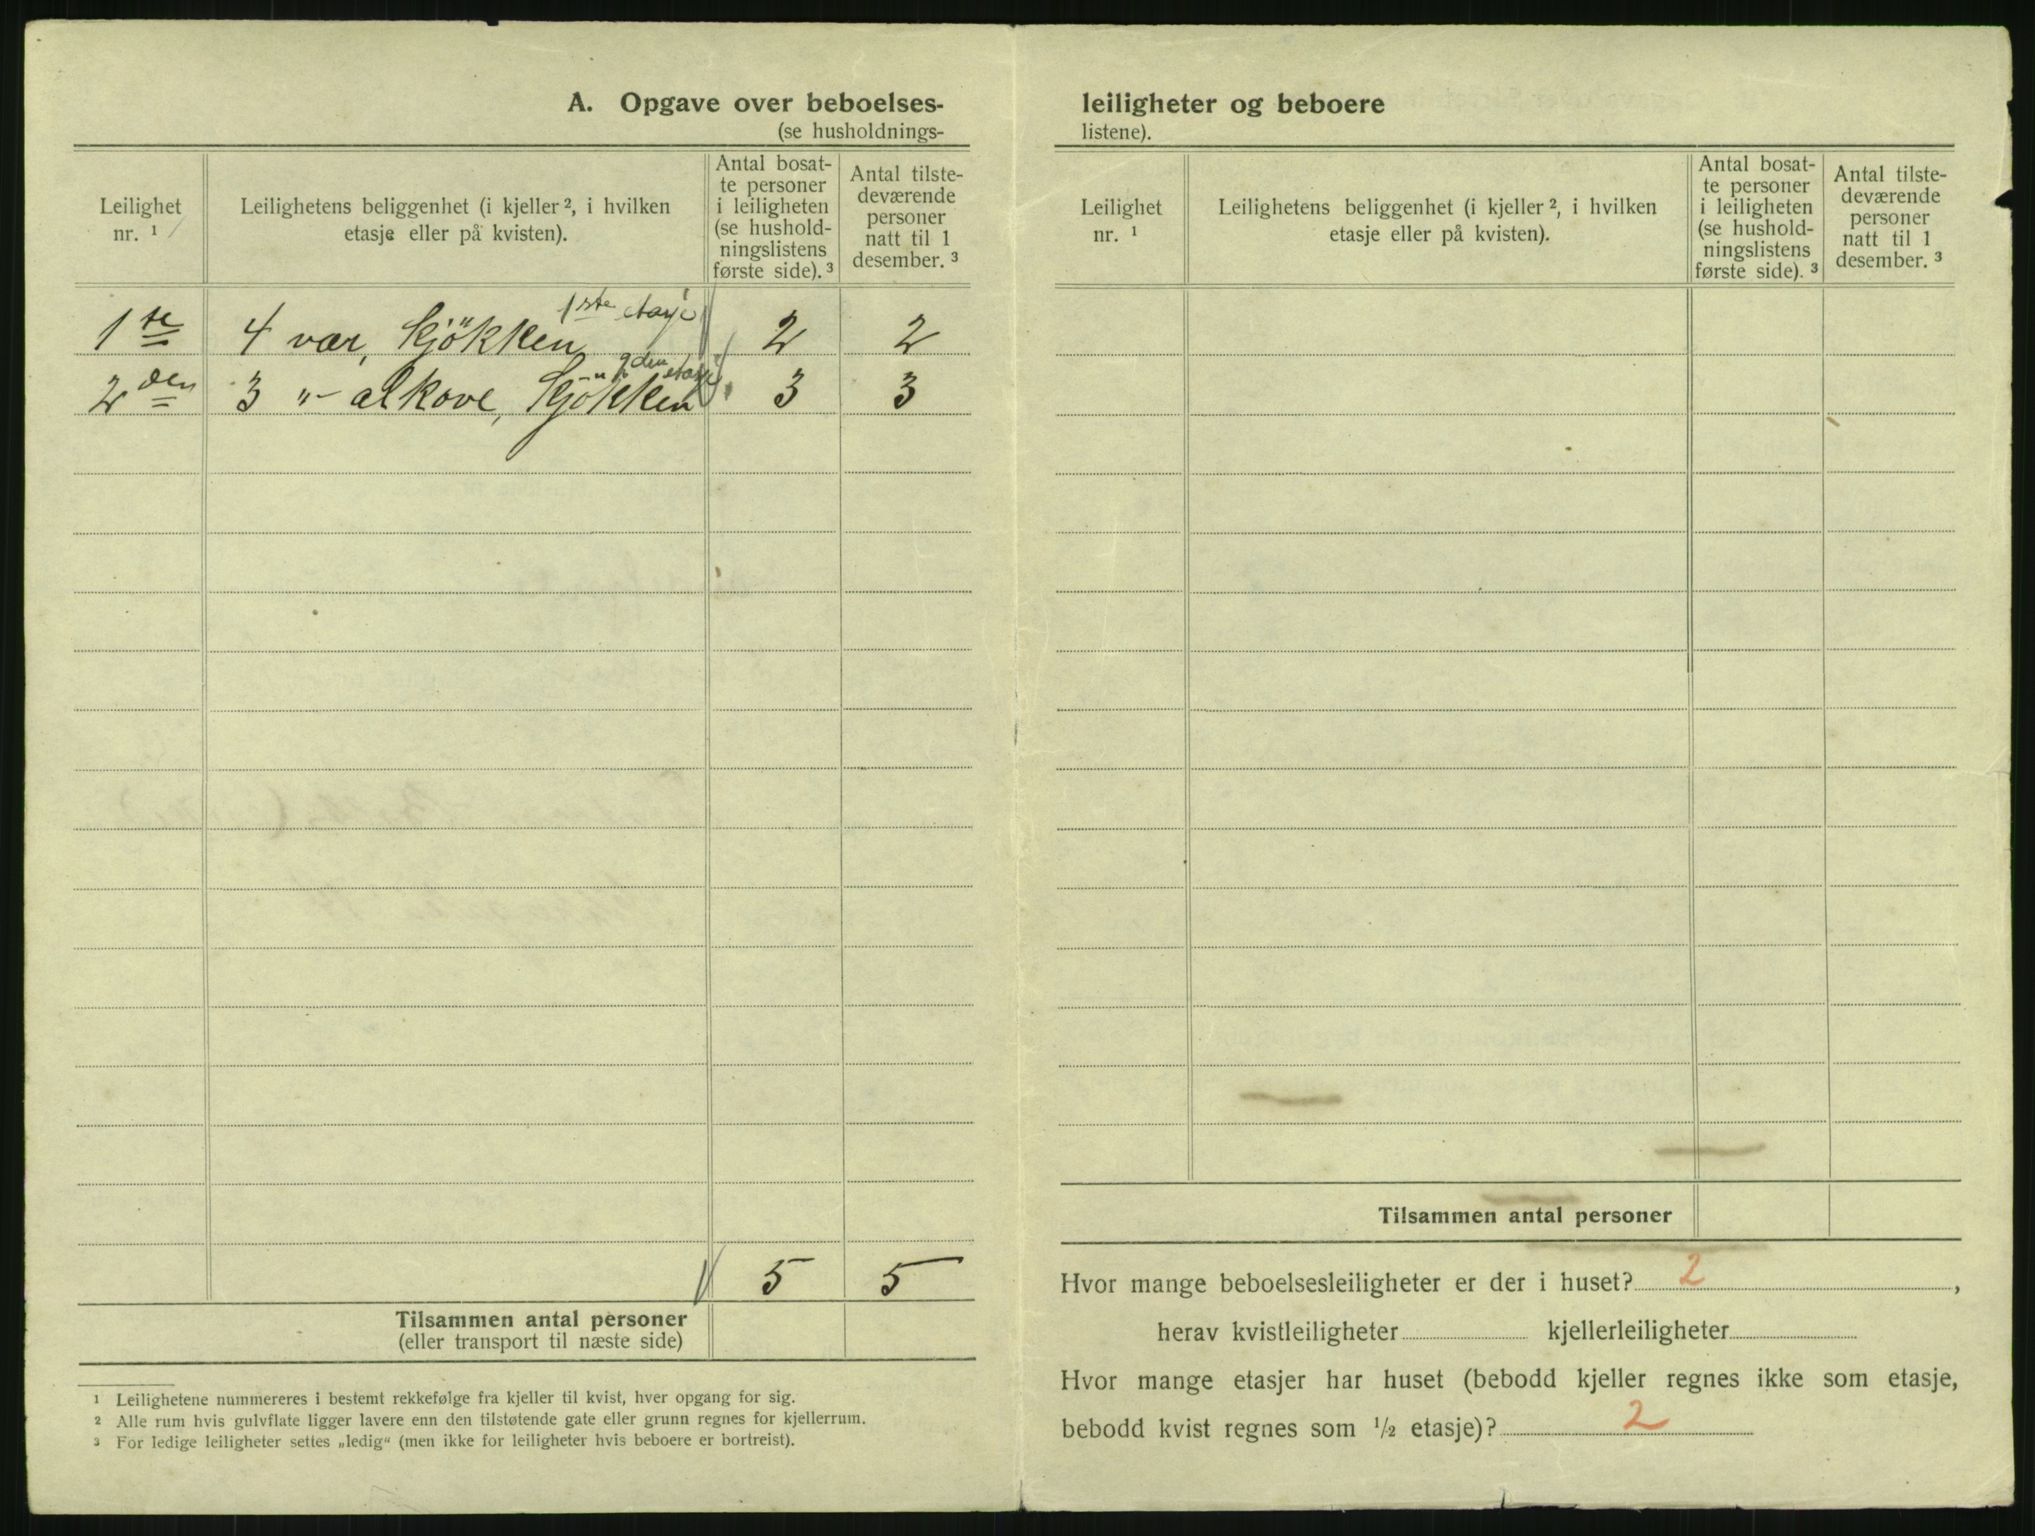 A. Opgave over beboelses-
(se husholdnings-
Leilighet
nr. ¹
Leilighetens beliggenhet (i kjeller ², i hvilken
etasje eller på kvisten).
Antal bosat-
te personer
i leiligheten
(se hushold-
ningslistens
første side). ³
Antal tilste-
deværende
personer
natt til 1
desember. ³
1ste etasje
1 te 4 vær, kjökken 2 2
2den etasje
2 den 3 "- alkove, kjökken 3 3
5 5
Tilsammen antal personer
(eller transport til næste side)
¹ Leilighetene nummereres i bestemt rekkefølge fra kjeller til kvist, hver opgang for sig.
² Alle rum hvis gulvflate ligger lavere enn den tilstøtende gate eller grunn regnes for kjellerrum.
³ For ledige leiligheter settes „ledig“ (men ikke for leiligheter hvis beboere er bortreist).
leiligheter og beboere
listene).
Leilighet
nr. ¹
Leilighetens beliggenhet (i kjeller ², i hvilken
etasje eller på kvisten).
Antal bosat-
te personer
i leiligheten
(se hushold-
ningslistens
første side). ³
Antal tilste-
deværende
personer
natt til 1
desember. ³
Tilsammen antal personer
Hvor mange beboelsesleiligheter er der i huset? 2 ,
herav kvistleiligheter kjellerleiligheter
Hvor mange etasjer har huset (bebodd kjeller regnes ikke som etasje,
bebodd kvist regnes som ½ etasje)? 2